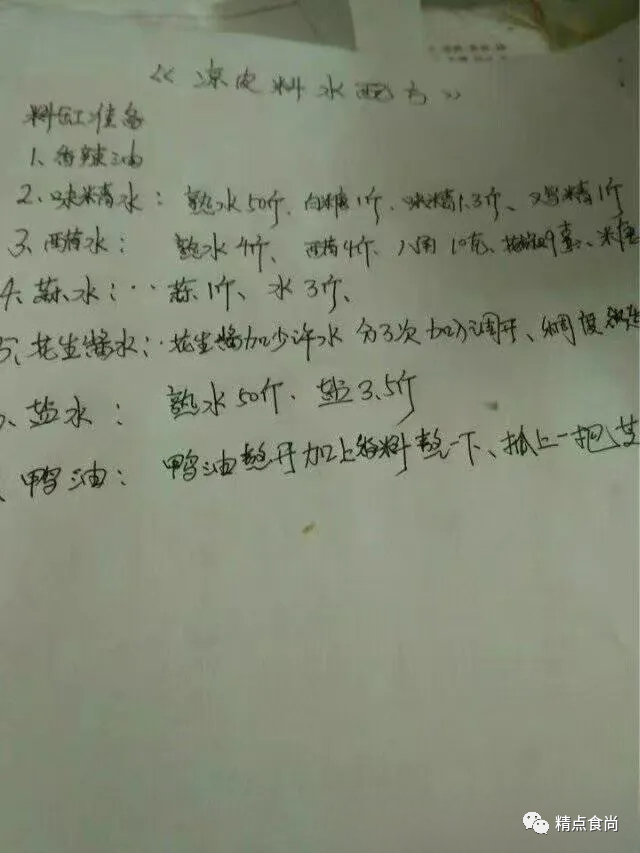 《凉皮料水配方》
料缸准备
1、香辣油
2、味精水：熟水50斤、白糖1斤、味精1.3斤、鸡精1斤
3、醋水：熟水4斤、醋4斤、八角10克、
4、蒜水：‥蒜1斤、水3斤、
5、花生酱水：花生酱加少许水 分3次加入调开、稠度
、盐水：熟水50斤、盐3.5斤
、鸭油：鸭油熬开加上香料熬一下、抓上一把芝
精点食尚